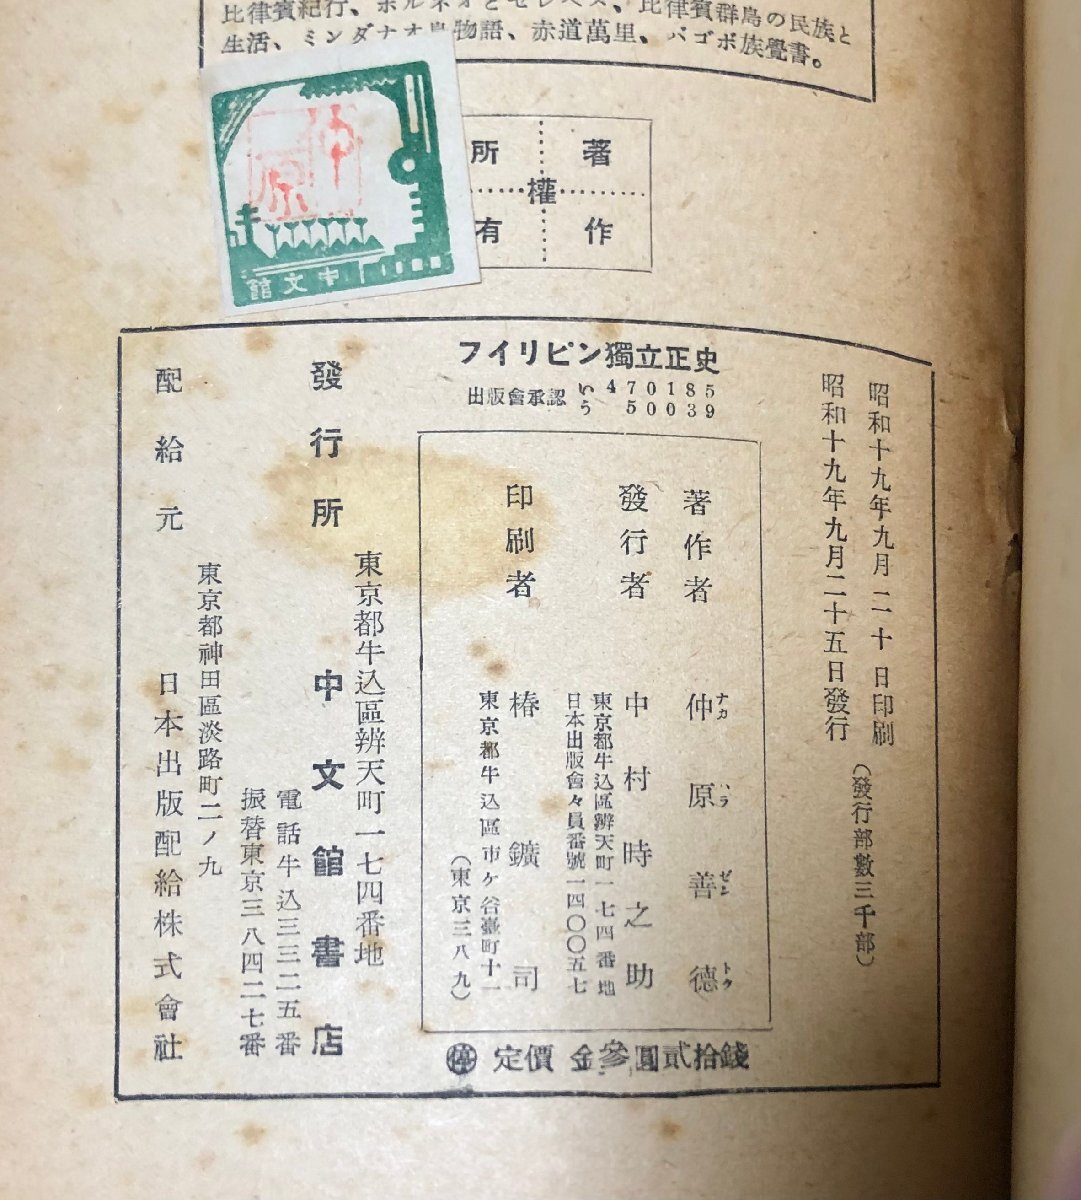 比律賓紀行、ボルネオとセレベス、比律賓群島の民族と
生活、ミンダナオ島物語、赤道萬里、バゴボ族覺書。
著作權所有
仲原
中文館
フイリピン獨立正史
出版會承認 い 470185
う 50039
昭和十九年九月二十日印刷
昭和十九年九月二十五日發行
(發行部數三千部)
著作者 仲原善德
ナカ ハラ ゼン トク
發行者 中村時之助
東京都牛込區辨天町一七四番地
日本出版會々員番號一四〇〇五七
印刷者 椿鑛司
東京都牛込區市ケ谷臺町十一
(東京三八九)
停 定價 金參圓貳拾錢
東京都牛込區辨天町一七四番地
發行所 中文館書店
電話牛込三三二五番
振替東京三八四二七番
東京都神田區淡路町二ノ九
配給元 日本出版配給株式會社